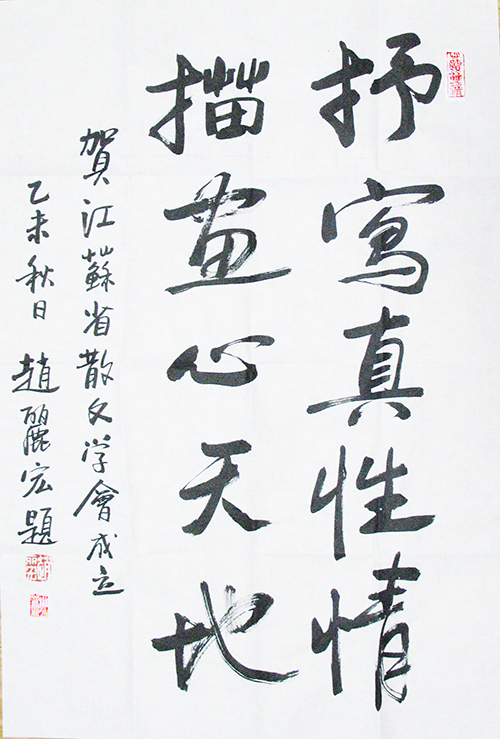 抒寫真性情
描畫心天地
賀江蘇省散文学會成立
乙未秋日 趙麗宏題